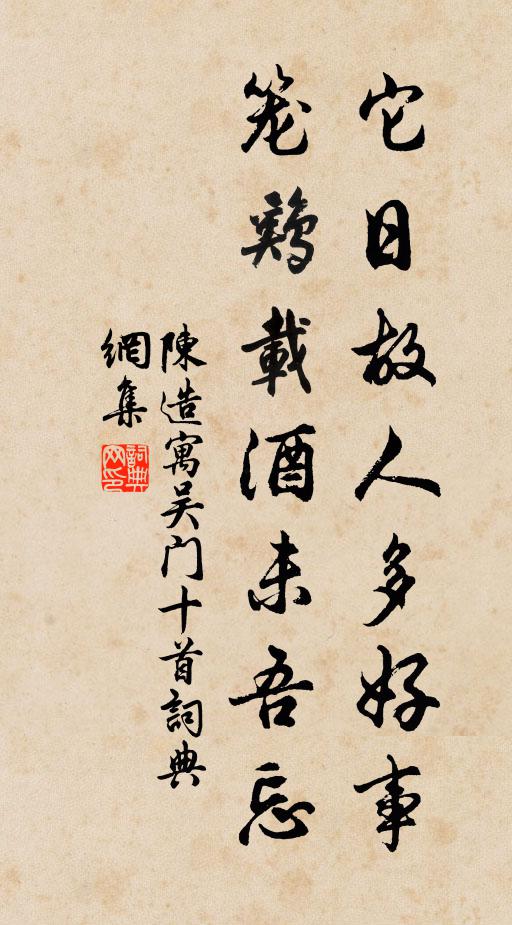 它日故人多好事
笼鷄載酒未吾忘
陳造寓吴门十首詞典
網集
詞典网印